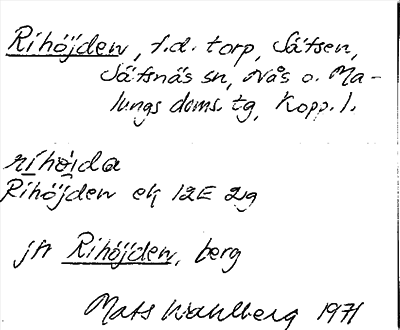 Rihöjden, f.d. torp, Sätsen,
Säfsnäs sn, Nås o. Ma-
lungs doms. tg, Kopp. l.
rihøida
Rihöjden ek 12E 2g
jfr Rihöjden, berg
Mats Wahlberg 1971